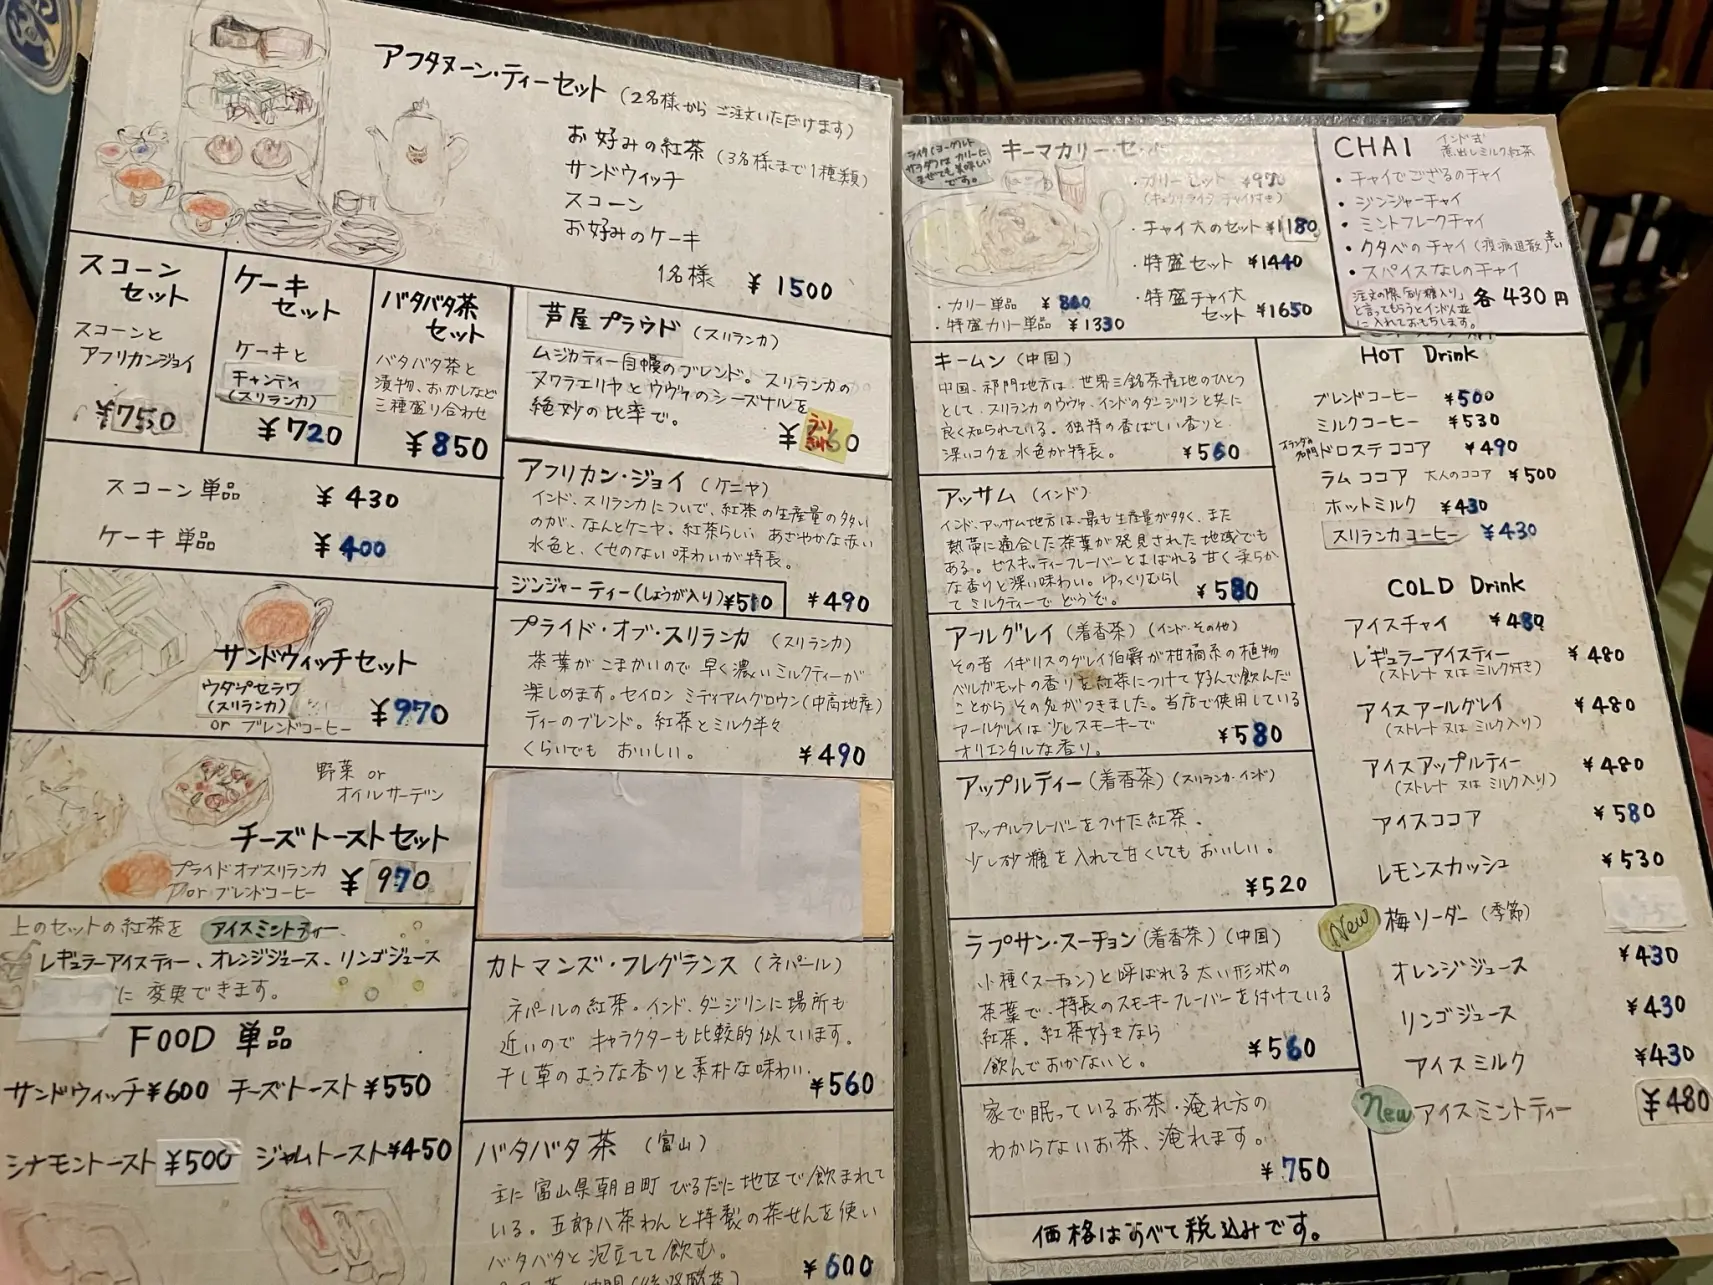 アフタヌーン・ティーセット (2名様からご注文いただけます)
お好みの紅茶 (3名様まで1種類)
サンドウィッチ
スコーン
お好みのケーキ
1名様 ¥1500
スコーンセット
スコーンと
アフリカンジョイ
¥750
ケーキセット
ケーキと
キャンディ
(スリランカ)
¥720
バタバタ茶セット
バタバタ茶と
漬物、おかしなど
三種盛り合わせ
¥850
スコーン単品 ¥430
ケーキ単品 ¥400
サンドウィッチセット
ウダプセラワ
(スリランカ)
or ブレンドコーヒー
¥970
野菜 or
オイルサーデン
チーズトーストセット
プライドオブスリランカ
or ブレンドコーヒー
¥970
上のセットの紅茶を アイスミントティー、
レギュラーアイスティー、オレンジジュース、リンゴジュース
に変更できます。
FOOD 単品
サンドウィッチ¥600 チーズトースト¥550
シナモントースト¥500 ジャムトースト¥450
芦屋プラウド (スリランカ)
ムジカティー自慢のブレンド。スリランカの
ヌワラエリヤとウヴァのシーズナルを
絶妙の比率で。
うりきれ
アフリカン・ジョイ (ケニヤ)
インド、スリランカについで、紅茶の生産量の多い
のが、なんとケニヤ。紅茶らしい あざやかな赤い
水色と、くせのない味わいが特長。
ジンジャーティー(しょうが入り)¥510
¥490
プライド・オブ・スリランカ (スリランカ)
茶葉がこまかいので早く濃いミルクティーが
楽しめます。セイロン ミディアムグロウン(中高地産)
ティーのブレンド。紅茶とミルク半々
くらいでも おいしい。
¥490
カトマンズ・フレグランス (ネパール)
ネパールの紅茶。インド、ダージリンに場所も
近いので キャラクターも比較的似ています。
干し草のような香りと素朴な味わい。
¥560
バタバタ茶 (富山)
主に富山県朝日町 びるだに地区で飲まれて
いる。五郎八茶わんと特製の茶せんを使い
バタバタと泡立てて飲む。
¥600
ライタ(ヨーグルト
サラダ)は カリーに
まぜても美味しい
です。
キーマカリー・セ
・カリーセット ¥970
・チャイ大のセット ¥1180
・特盛セット ¥1440
・特盛チャイ大
セット ¥1650
・カリー単品 ¥860
・特盛カリー単品 ¥1330
CHAI インド式
煮出しミルク紅茶
・チャイでござるのチャイ
・ジンジャーチャイ
・ミントフレークチャイ
・クタベのチャイ(疫病退散)
・スパイスなしのチャイ
注文の際「砂糖入り」
と言ってもらうとインド人並
に入れておもちします。
各430円
キームン (中国)
中国、祁門地方は、世界三銘茶産地のひとつ
として、スリランカのウヴァ、インドのダージリンと共に
良く知られている。独特の香ばしい香りと、
深いコクを水色が特長。
¥560
アッサム (インド)
インド、アッサム地方は、最も生産量が多く、また
熱帯に適合した茶葉が発見された地域でも
ある。ゼスキッティーフレーバーとよばれる甘く柔らか
な香りと深い味わい。ゆっくりむらし
て ミルクティーで どうぞ。
¥580
アールグレイ (着香茶) (インド・その他)
その昔 イギリスのグレイ伯爵が柑橘系の植物
ベルガモットの香りを紅茶につけて好んで飲んだ
ことから その名がつきました。当店で使用している
アールグレイは少しスモーキーで
オリエンタルな香り。
¥580
アップルティー(着香茶)(スリランカ・インド)
アップルフレーバーをつけた紅茶。
少し砂糖を入れて甘くしてもおいしい。
¥520
ラプサン・スーチョン(着香茶)(中国)
小種(スーチョン)と呼ばれる太い形状の
茶葉で、特長のスモーキーフレーバーを付けている
紅茶。紅茶好きなら
飲んでおかないと。
¥560
家で眠っているお茶・淹れ方の
わからないお茶、淹れます。
¥750
価格はすべて税込みです。
HOT Drink
ブレンドコーヒー ¥500
ミルクコーヒー ¥530
オランダの名門 ドロステココア ¥490
ラムココア 大人のココア ¥500
ホットミルク ¥430
スリランカコーヒー ¥430
COLD Drink
アイスチャイ ¥480
レギュラーアイスティー ¥480
(ストレート又はミルク付き)
アイスアールグレイ ¥480
(ストレート又はミルク入り)
アイスアップルティー ¥480
(ストレート又はミルク入り)
アイスココア ¥580
レモンスカッシュ ¥530
New 梅ソーダー (季節)
オレンジジュース ¥430
リンゴジュース ¥430
アイスミルク ¥430
New アイスミントティー ¥480